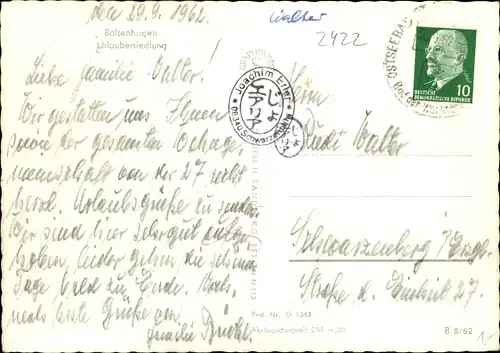 den 29.9.1962.
Boltenhagen
Urlaubersiedlung
Walter
2422
Liebe Familie Walter!
Wir gestatten uns Ihnen
sowie der gesamten
mannschaft von der 27 recht
herzl. Urlaubsgrüße zu senden.
Wir sind hier sehr gut
leider gehen die schönen
Tage bald zu Ende.
mals beste Grüße von
Familie
OSTSEEBAD
10
DEUTSCHE
DEMOKRATISCHE REPUBLIK
Joachim Erler
Schwarzenberg
Rudi Walter
Schwarzenberg/Erzgb.
Straße d. Einheit 27.
Best. Nr. G 1383
Verbraucherpreis DM —,20
B 8/62